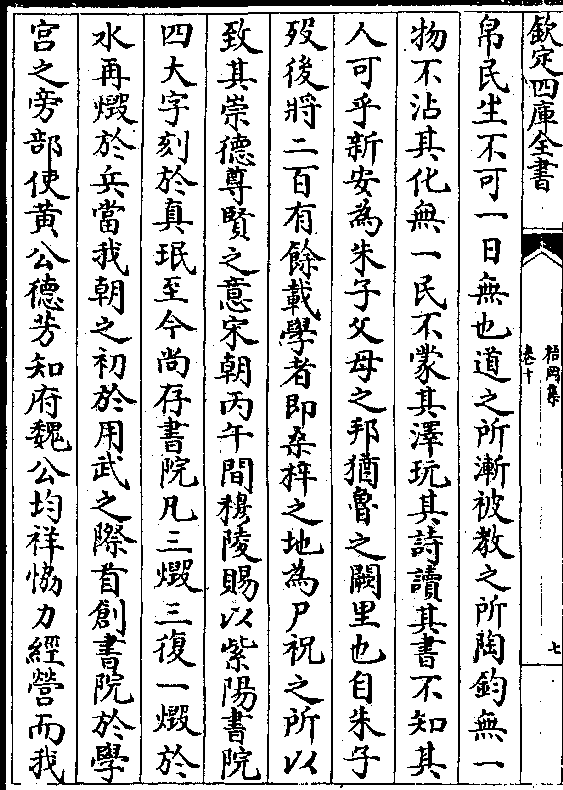 欽定四庫全書
梧岡集
卷十
七
帛民生不可一日無也道之所漸被教之所陶鈞無一
物不沾其化無一民不蒙其澤玩其詩讀其書不知其
人可乎新安為朱子父母之邦猶魯之闕里也自朱子
歿後將二百有餘載學者即桑梓之地為尸祝之所以
致其崇德尊賢之意宋朝丙午間穆陵賜以紫陽書院
四大字刻於真珉至今尚存書院凡三燬三復一燬於
水再燬於兵當我朝之初於用武之際首創書院於學
宫之旁部使黄公德芳知府魏公均祥恊力經營而我